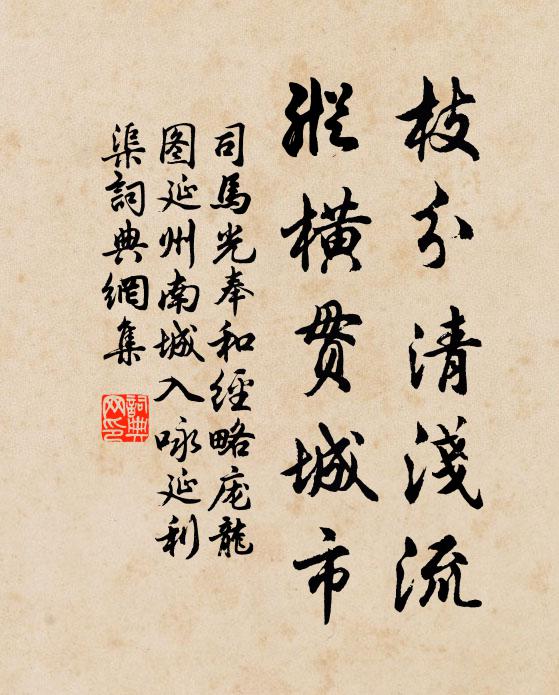 枝分清淺流
縱橫贯城市
司馬光奉和經略庞龍
图延州南城入咏延利
渠詞典網集
詞典
网印